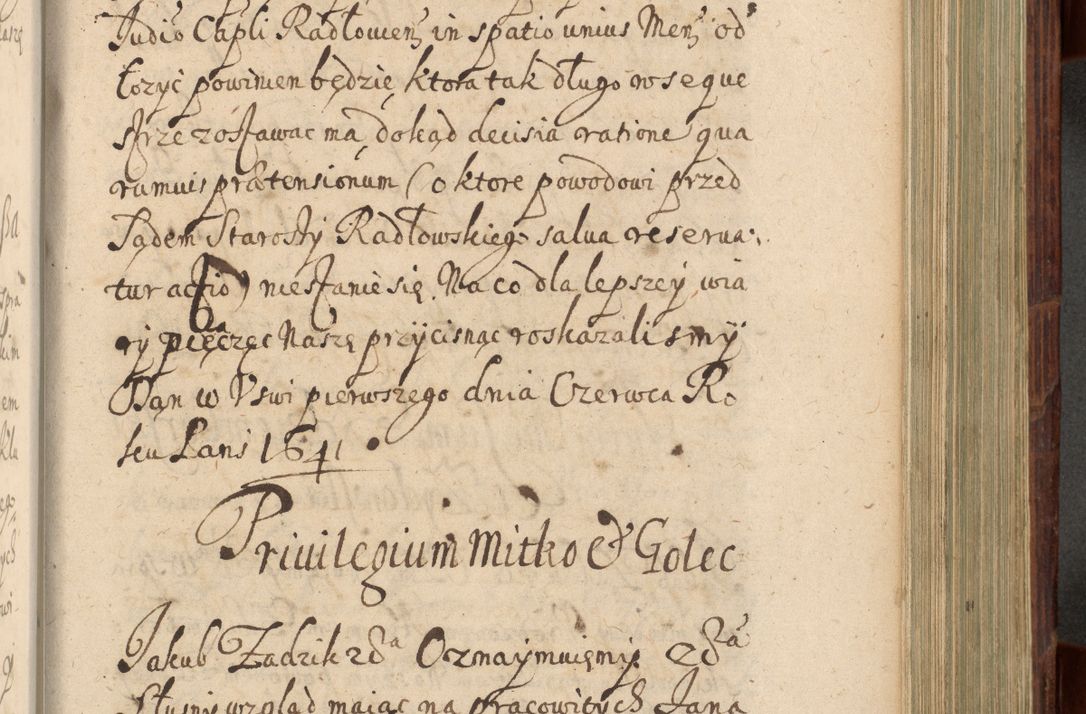 Judio Capli Radłowien in spatio unius Men od
łozyć powinien będzie, ktora tak długo w seque
strze zostawac ma, dokąd decisia ratione qua
rumuis prætensionum (o ktore powodowi przed
Sądem Starosty Radłowskiego salua reserua
tur actio) niestanie się. Na co dla lepszey wia
ry pieczęc Naszę przycisnąc roskazali smy
Dan w Vswi pierwszego dnia Czerwca Ro
ku Pans 1641
Priuilegium Mitko & Golec
Jakub Zadzik &ca Oznaymuięmy &ca
Słusny wzgląd maiąc na pracowitych Jana